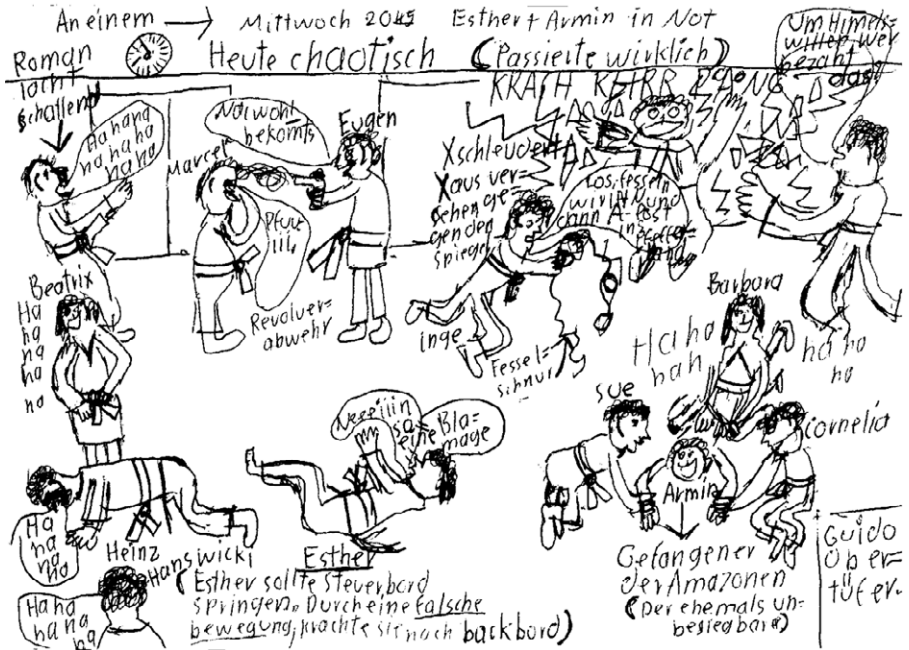 An einem → Mittwoch 2045 Esther + Armin in Not
Heute chaotisch (Passierte wirklich)
Um Himels=
willen wer
bezahlt
das?
Roman
lacht
schallend
KRACH KLIRR
Ha hana
na ha ha
ha ha
Marcel
Na wohl
bekomts
Eugen
Pfui
Revolver=
abwehr
X schleudert
X aus ver=
sehen ge=
gen den
Spiegel
Los, fesseln
wir ihn und
dann
inge
Fessel=
schnur
Beatrix
Ha
ha
na
ha
no
Barbara
Ha ha
hah
ha ha
ha
Sue
Cornelia
Armin
Gefangener
der Amazonen
(Der ehemals un=
besiegbare)
Neeeiiin
so
eine Bla=
mage
Esther
Heinz
Ha
na
na
na
Hanswicki
Haha
ha na
ha
(Esther sollte Steuerbord
springen. Durch eine falsche
bewegung, krachte sie nach backbord)
Guido